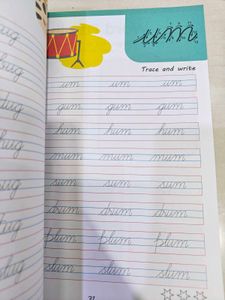 um
Trace and write
um um um
gum gum gum
hum hum hum
mum mum mum
sum sum sum
drum drum drum
plum plum plum
slum slum slum